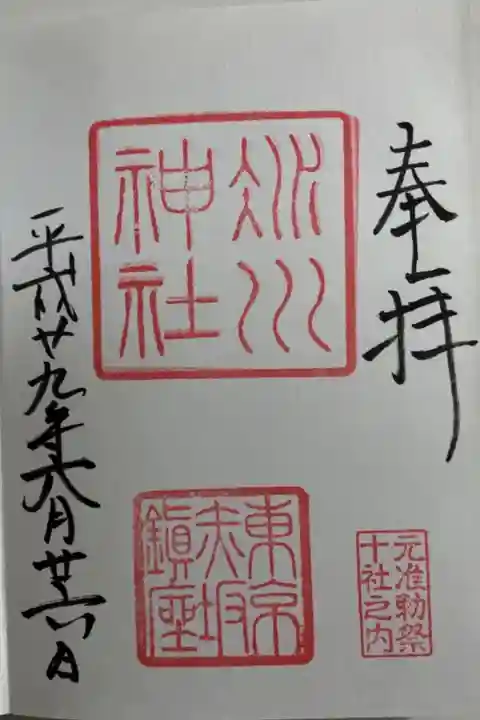 奉拝
冰川
神社
東京
赤坂
鎭座
元准勅祭
十社之内
平成廿九年六月廿六日